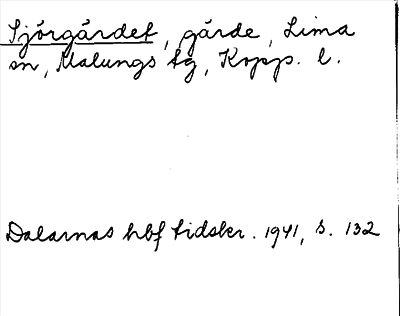 Sjörgårdet, gärde, Lima
sn, Malungs tg, Kopp. l.
Dalarnas hbf tidskr. 1941, s. 132